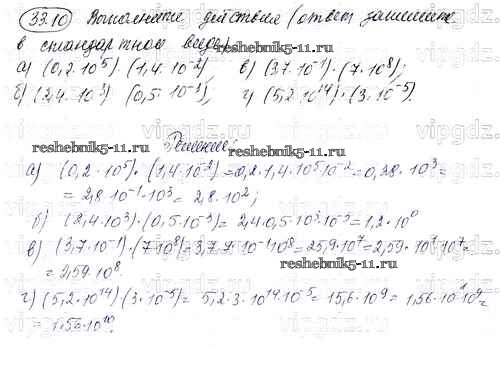 33.10 Выполните действия (ответ запишите
в стандартном виде)
reshebnik5-11.ru
а) (0,2·10⁵)·(1,4·10⁻²), в) (3,7·10⁻¹)·(7·10⁸);
б) (2,4·10³) (0,5·10⁻³), г) (5,2·10¹⁴)·(3·10⁻⁵).
reshebnik5-11.ru
vipgdz.ru
Решение:
reshebnik5-11.ru reshebnik5-11.ru
а) (0,2·10⁵)·(1,4·10⁻²)=0,2·1,4·10⁵·10⁻²=0,28·10³=
=2,8·10⁻¹·10³=2,8·10²;
б) (2,4·10³)·(0,5·10⁻³)=2,4·0,5·10³·10⁻³=1,2·10⁰
в) (3,7·10⁻¹)·(7·10⁸)=3,7·7·10⁻¹·10⁸=25,9·10⁷=2,59·10¹·10⁷=
=2,59·10⁸
reshebnik5-11.ru
г) (5,2·10¹⁴)(3·10⁻⁵)=5,2·3·10¹⁴·10⁻⁵=15,6·10⁹=1,56·10¹·10⁹=
=1,56·10¹⁰.